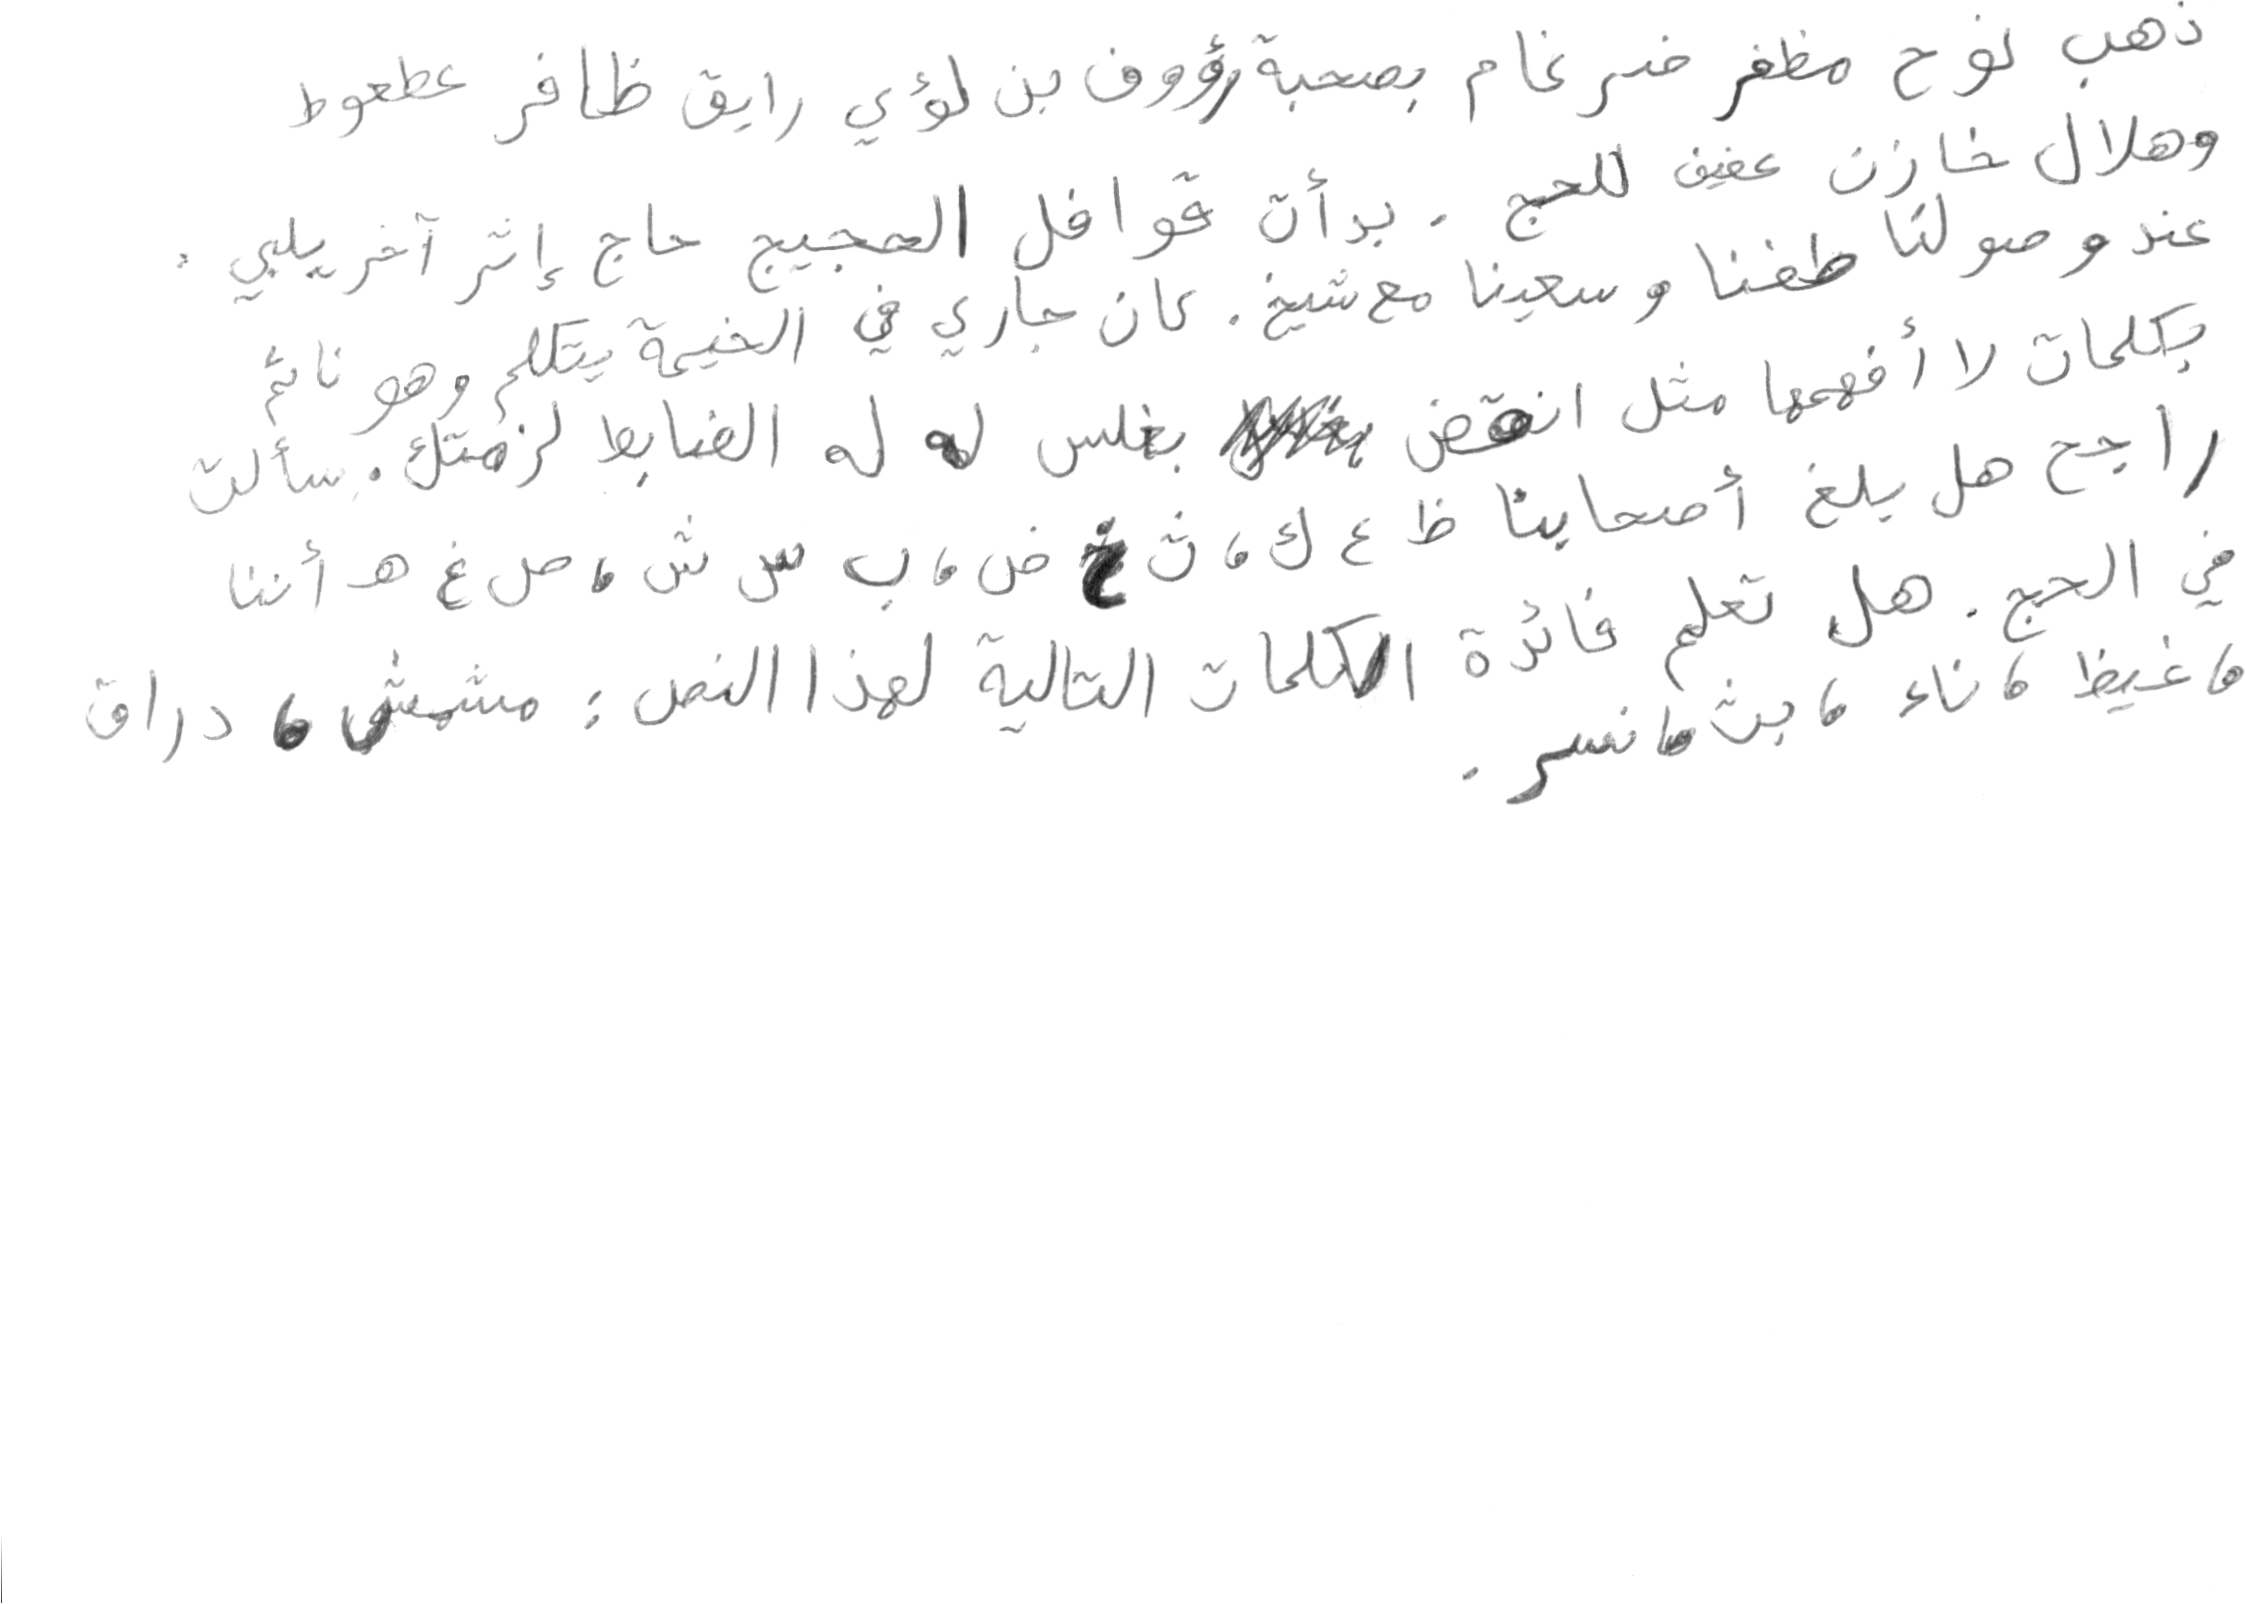 ذهب نوح مظفر ضرغام بصحبة رؤوف بن لؤي رايق ظافر عطعوط
وهلال خازن عفيف للحج . بدأت قوافل الحجيج حاج إثر آخر يلبي .
عند وصولنا طفنا وسعينا مع شيخ . كان جاري في الخيمة يتكلم وهو نائم
بكلمات لا أفهمها مثل انقض بغلس له له الضابط لزمتك . سألت
راجح هل بلغ أصحابنا ظ ع ك ، ث خ ض ، ب س ش ، ص غ هـ أننا
في الحج . هل تعلم فائدة الكلمات التالية لهذا النص : مشمش ، دراق
، غيظ ، ناء ، بث ، نسر .